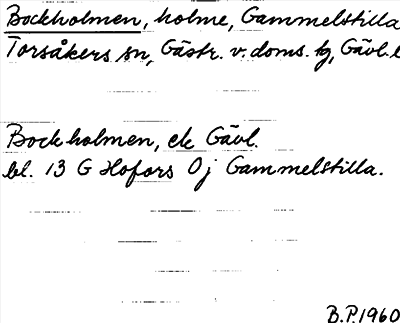 Bockholmen, holme, Gammelstilla
Torsåkers sn, Gästr. v. doms. tg, Gävl. l
Bockholmen, ek Gävl.
bl. 13 G Hofors Oj Gammelstilla.
B.P. 1960